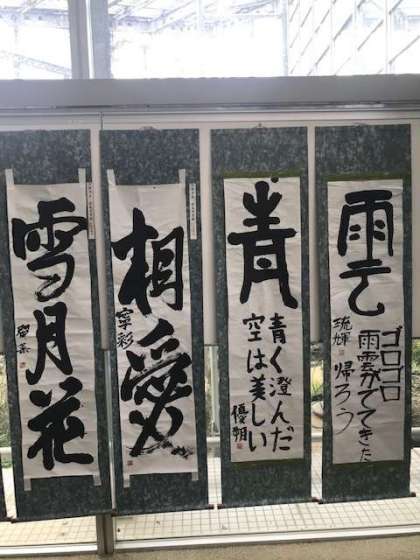 雲
ゴロゴロ
雨雲がでてきた
帰ろう
琉輝
青
青く澄んだ
空は美しい
相愛
寧彩
雪月花